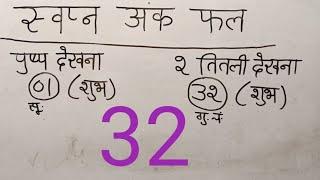 स्वप्न अंक फल
पुष्प देखना
०१ (शुभ)
सू:
२ तितली देखना
३२ (शुभ)
गु: चं
32